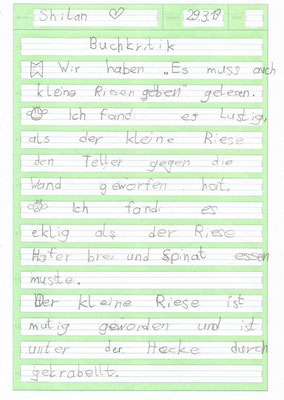 Name: Shilan ♡ Datum: 29.3.19
Buchkritik
Wir haben „Es muss auch
kleine Riesen geben" gelesen.
Ich fand es Lustig,
als der kleine Riese
den Teller gegen die
Wand geworfen hat.
Ich fand es
eklig als der Riese
Hafer brei und Spinat essen
musste.
Der kleine Riese ist
mutig geworden und ist
unter der Hecke durch
gekrabellt.